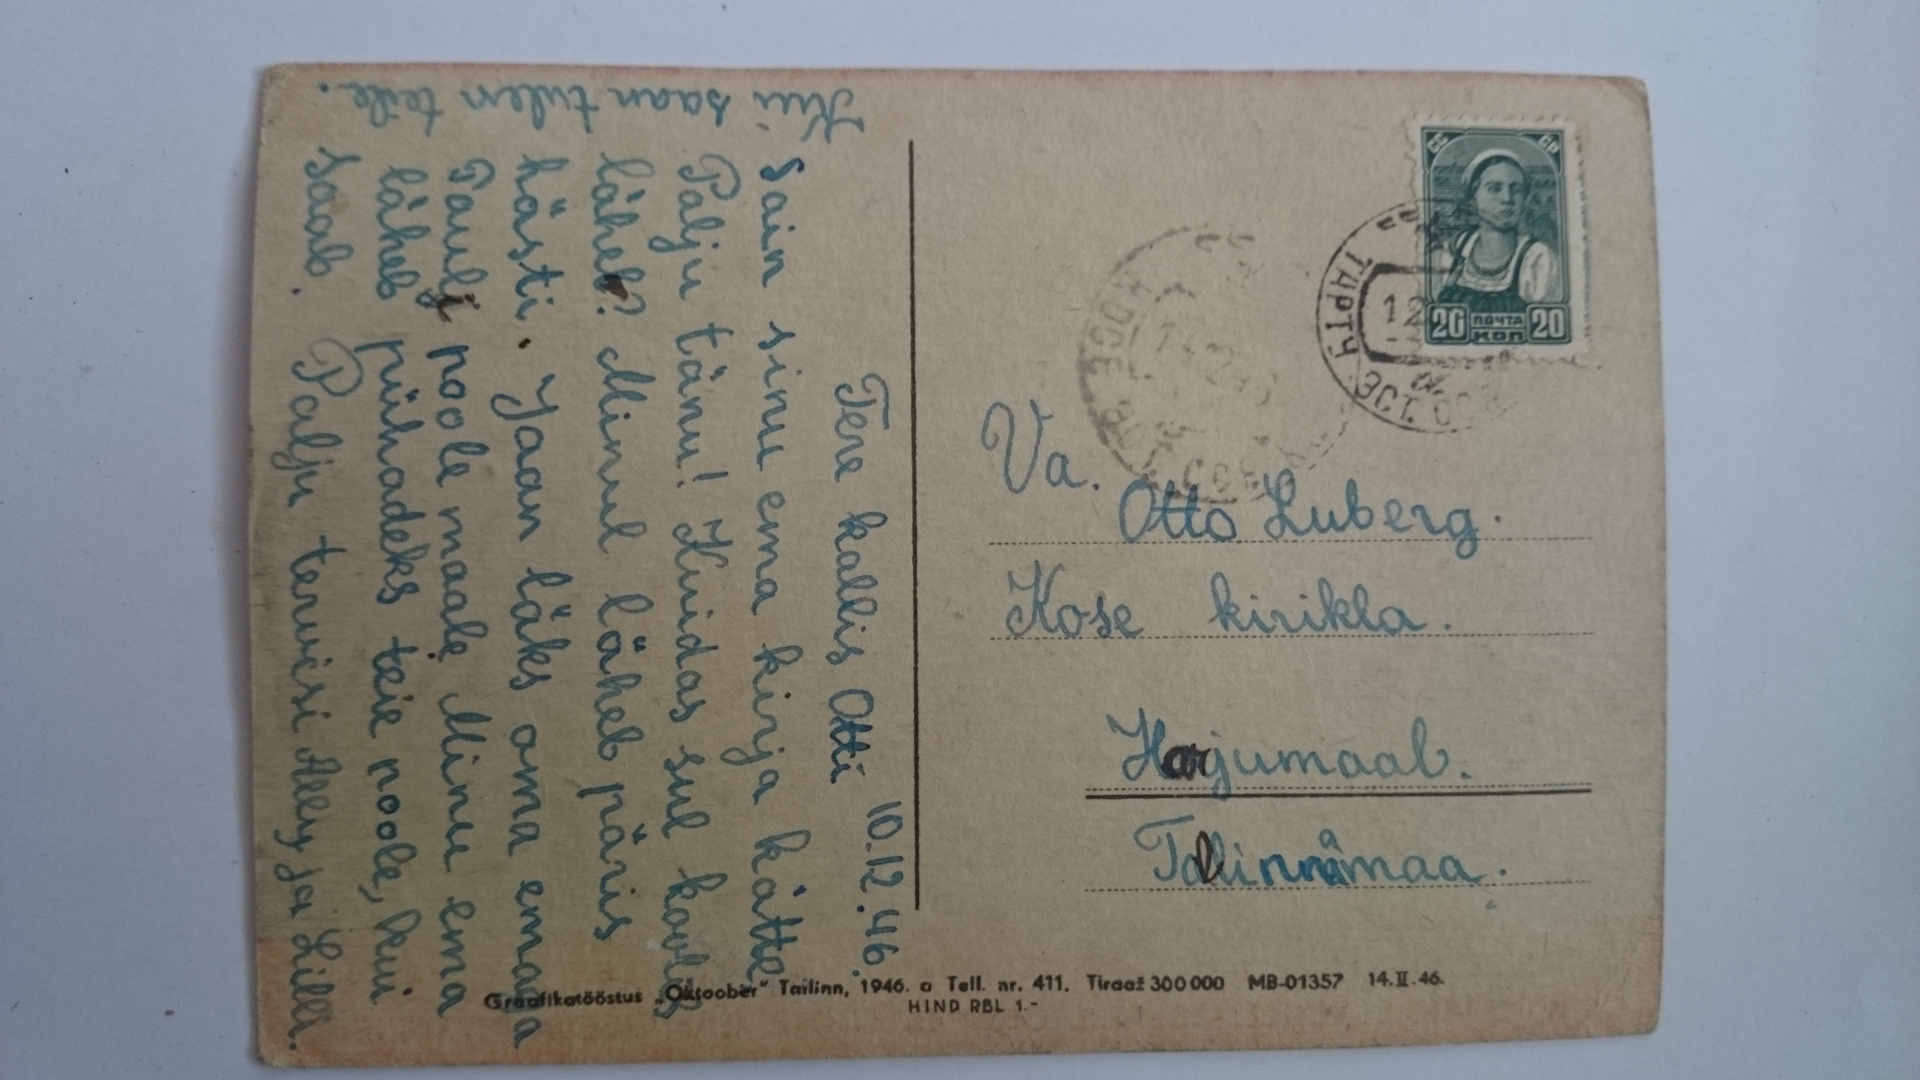 10.12.46.
Tere kallis Otti
Sain sinu ema kirja kätte
Palju tänu! Kuidas sul koolis
läheb? Minul läheb päris
hästi. Jaan läks oma emaga
Pauli poole maale. Minu ema
läheb pühadeks teie poole, kui
saab. Palju tervisi Ally ja Lilli.
Kui saan tulen teile.
СС СР
20 ПОЧТА 20
КОП
ТАРТУ ЭСТ.
12
KOSE
Va. Otto Luberg.
Kose kirikla.
Harjumaal.
Tallinnamaa.
Graafikatööstus „Oktoober" Tallinn, 1946. a Tell. nr. 411. Tiraaž 300 000 MB-01357 14.II.46.
HIND RBL 1.-